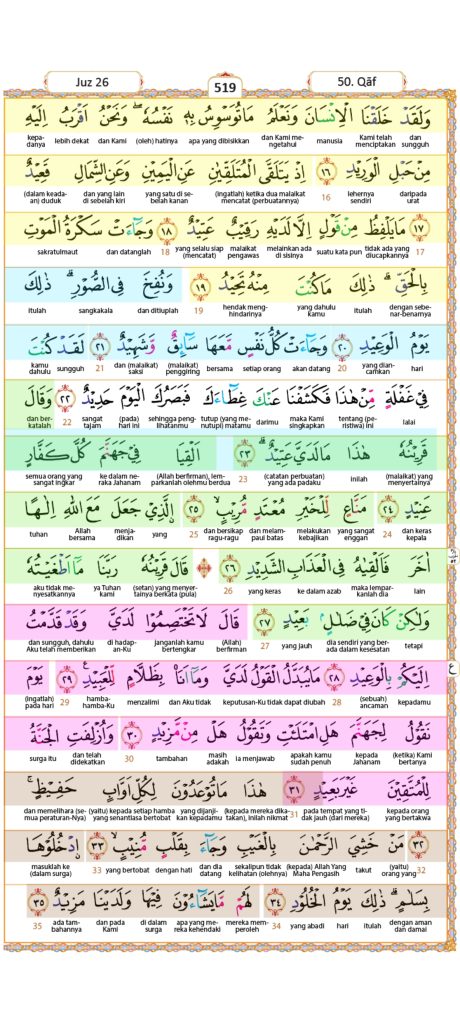 Juz 26
519
50. Qāf
وَلَقَدْ خَلَقْنَا الْاِنْسَانَ وَنَعْلَمُ مَا تُوَسْوِسُ بِهٖ نَفْسُهٗۖ وَنَحْنُ اَقْرَبُ اِلَيْهِ
dan sungguh Kami telah menciptakan manusia dan Kami mengetahui apa yang dibisikkan (oleh) hatinya dan Kami lebih dekat kepadanya
مِنْ حَبْلِ الْوَرِيْدِ ١٦ اِذْ يَتَلَقَّى الْمُتَلَقِّيٰنِ عَنِ الْيَمِيْنِ وَعَنِ الشِّمَالِ قَعِيْدٌ
daripada urat lehernya sendiri 16 (ingatlah) ketika dua malaikat mencatat (perbuatannya) yang satu di sebelah kanan dan yang lain di sebelah kiri (dalam keadaan) duduk
١٧ مَا يَلْفِظُ مِنْ قَوْلٍ اِلَّا لَدَيْهِ رَقِيْبٌ عَتِيْدٌ ١٨ وَجَاۤءَتْ سَكْرَةُ الْمَوْتِ
17 tidak ada yang diucapkannya suatu kata pun melainkan ada di sisinya malaikat pengawas yang selalu siap (mencatat) 18 dan datanglah sakratulmaut
بِالْحَقِّۗ ذٰلِكَ مَا كُنْتَ مِنْهُ تَحِيْدُ ١٩ وَنُفِخَ فِى الصُّوْرِۗ ذٰلِكَ
dengan sebenar-benarnya itulah yang dahulu kamu hendak menghindarinya 19 dan ditiuplah sangkakala itulah
يَوْمُ الْوَعِيْدِ ٢٠ وَجَاۤءَتْ كُلُّ نَفْسٍ مَّعَهَا سَاۤىِٕقٌ وَّشَهِيْدٌ ٢١ لَقَدْ كُنْتَ
hari yang diancamkan 20 akan datang setiap orang bersama (malaikat) penggiring dan (malaikat) saksi 21 sungguh kamu dahulu
فِيْ غَفْلَةٍ مِّنْ هٰذَا فَكَشَفْنَا عَنْكَ غِطَاۤءَكَ فَبَصَرُكَ الْيَوْمَ حَدِيْدٌ ٢٢ وَقَالَ
lalai tentang (peristiwa) ini maka Kami singkapkan darimu tutup (yang menutupi) matamu sehingga penglihatanmu (pada) hari ini sangat tajam 22 dan berkatalah
قَرِيْنُهٗ هٰذَا مَا لَدَيَّ عَتِيْدٌۗ ٢٣ اَلْقِيَا فِيْ جَهَنَّمَ كُلَّ كَفَّارٍ
(malaikat) yang menyertainya inilah (catatan perbuatan) yang ada padaku 23 (Allah berfirman), lemparkanlah olehmu berdua ke dalam neraka Jahanam semua orang yang sangat ingkar
عَنِيْدٍ ٢٤ مَنَّاعٍ لِّلْخَيْرِ مُعْتَدٍ مُّرِيْبٍۙ ٢٥ ۨالَّذِيْ جَعَلَ مَعَ اللّٰهِ اِلٰهًا
dan keras kepala 24 yang sangat enggan melakukan kebajikan dan melampaui batas dan bersikap ragu-ragu 25 yang menjadikan bersama Allah tuhan
اٰخَرَ فَاَلْقِيٰهُ فِى الْعَذَابِ الشَّدِيْدِ ٢٦ ۞ قَالَ قَرِيْنُهٗ رَبَّنَا مَآ اَطْغَيْتُهٗ
lain maka lemparkanlah dia ke dalam azab yang keras 26 (setan) yang menyertainya berkata (pula) ya Tuhan kami aku tidak menyesatkannya
وَلٰكِنْ كَانَ فِيْ ضَلٰلٍۢ بَعِيْدٍ ٢٧ قَالَ لَا تَخْتَصِمُوْا لَدَيَّ وَقَدْ قَدَّمْتُ
tetapi dia sendiri yang berada dalam kesesatan yang jauh 27 (Allah) berfirman janganlah kamu bertengkar di hadapan-Ku dan sungguh, dahulu Aku telah memberikan
اِلَيْكُمْ بِالْوَعِيْدِ ٢٨ مَا يُبَدَّلُ الْقَوْلُ لَدَيَّ وَمَآ اَنَا۠ بِظَلَّامٍ لِّلْعَبِيْدِ ٢٩ يَوْمَ
kepadamu (sebuah) ancaman 28 keputusan-Ku tidak dapat diubah dan Aku tidak menzalimi hamba-hamba-Ku 29 (ingatlah) pada hari
ع
نَقُوْلُ لِجَهَنَّمَ هَلِ امْتَلَئْتِ وَتَقُوْلُ هَلْ مِنْ مَّزِيْدٍ ٣٠ وَاُزْلِفَتِ الْجَنَّةُ
(ketika) Kami bertanya kepada Jahanam apakah kamu sudah penuh ia menjawab masih adakah tambahan 30 dan telah didekatkan surga itu
لِلْمُتَّقِيْنَ غَيْرَ بَعِيْدٍ ٣١ هٰذَا مَا تُوْعَدُوْنَ لِكُلِّ اَوَّابٍ حَفِيْظٍۚ
kepada orang yang bertakwa pada tempat yang tidak jauh (dari mereka) 31 (kepada mereka dikatakan), inilah nikmat yang dijanjikan kepadamu (yaitu) kepada setiap hamba yang senantiasa bertobat dan memelihara (semua peraturan-Nya)
٣٢ مَنْ خَشِيَ الرَّحْمٰنَ بِالْغَيْبِ وَجَاۤءَ بِقَلْبٍ مُّنِيْبٍۙ ٣٣ ۨادْخُلُوْهَا
32 (yaitu) orang yang takut (kepada) Allah Yang Maha Pengasih sekalipun tidak kelihatan (olehnya) dan dia datang dengan hati yang bertobat 33 masuklah ke (dalam surga)
بِسَلٰمٍۗ ذٰلِكَ يَوْمُ الْخُلُوْدِ ٣٤ لَهُمْ مَّا يَشَاۤءُوْنَ فِيْهَا وَلَدَيْنَا مَزِيْدٌ ٣٥
dengan aman dan damai itulah hari yang abadi 34 mereka memperoleh apa yang mereka kehendaki di dalam surga dan pada Kami ada tambahannya 35